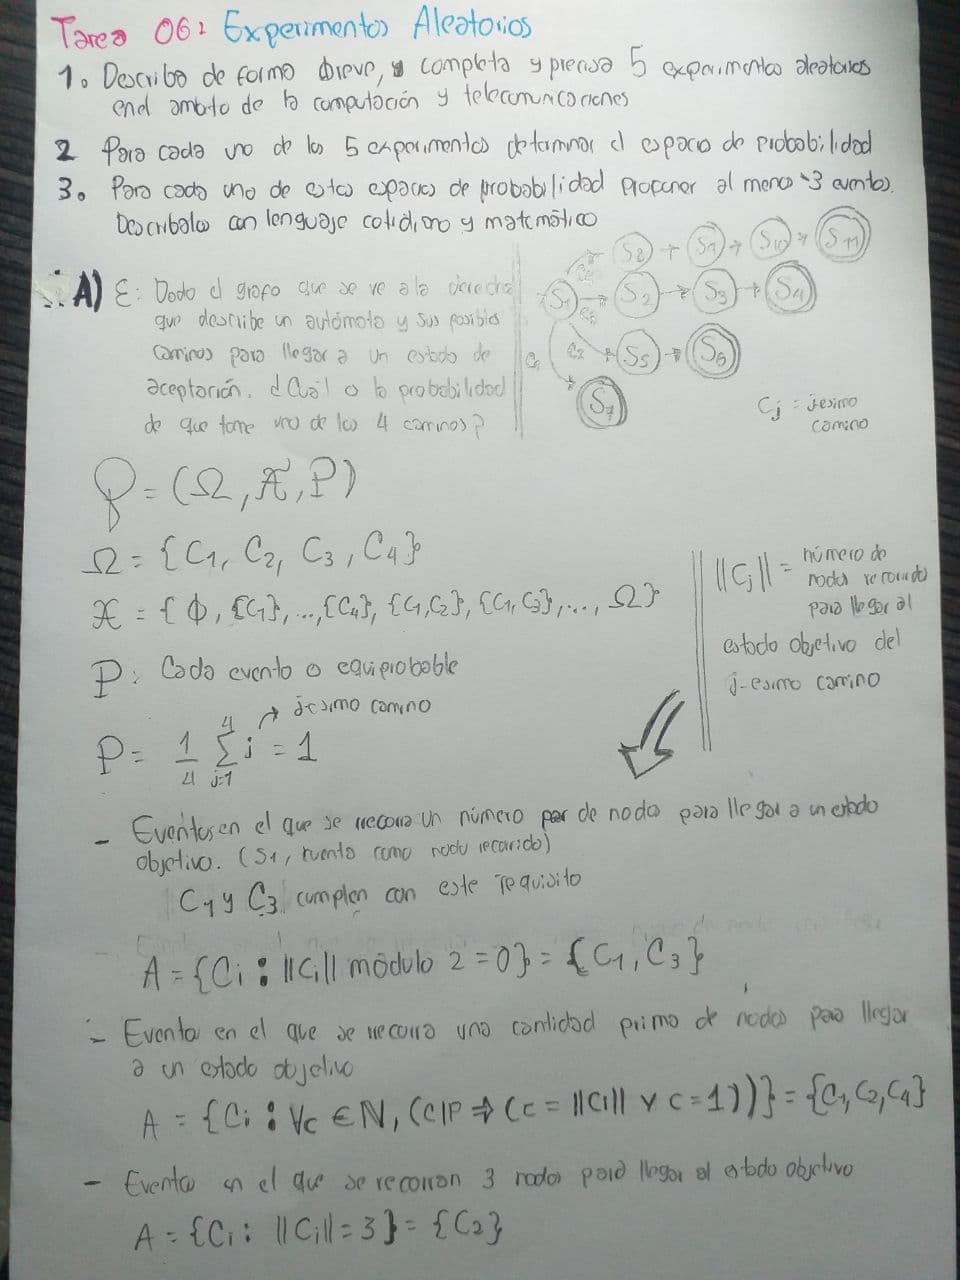 Tarea 06: Experimentos Aleatorios
1. Describa de forma breve, completa y precisa 5 experimentos aleatorios
en el ambito de la computación y telecomunicaciones
2 Para cada uno de los 5 experimentos determinar el espacio de probabilidad
3. Para cada uno de estos espacios de probabilidad proponer al menos 3 eventos.
Describalos con lenguaje cotidiano y matemático
A) ε: Dado el grafo que se ve a la derecha
que describe un autómata y sus posibles
caminos para llegar a un estado de
aceptación. ¿Cuál es la probabilidad
de que tome uno de los 4 caminos?
S8 → S9 → S10 → S11
S1 → S2 → S3 → S4
C3
C2 S5 → S6
C1
S7
Cj = jesimo
camino
P = (Ω, A, P)
Ω = {C1, C2, C3, C4}
A = {Φ, {C1}, ..., {C4}, {C1, C2}, {C1, C3}, ..., Ω}
P: Cada evento es equiprobable
P = 1/4 Σ j = 1
4
j=1
→ jesimo camino
||Cj|| = número de
nodos recorridos
para llegar al
estado objetivo del
j-esimo camino
- Eventos en el que se recorra un número par de nodos para llegar a un estado
objetivo. (S1, cuenta como nodo recorrido)
C1 y C3 cumplen con este requisito
A = {Ci : ||Ci|| módulo 2 = 0} = {C1, C3}
- Eventos en el que se recorra una cantidad primo de nodos para llegar
a un estado objetivo
A = {Ci : ∀c ∈ N, (c|P ⇒ (c = ||Ci|| ∨ c = 1))} = {C1, C2, C4}
- Eventos en el que se recorran 3 nodos para llegar al estado objetivo
A = {Ci : ||Ci|| = 3} = {C2}